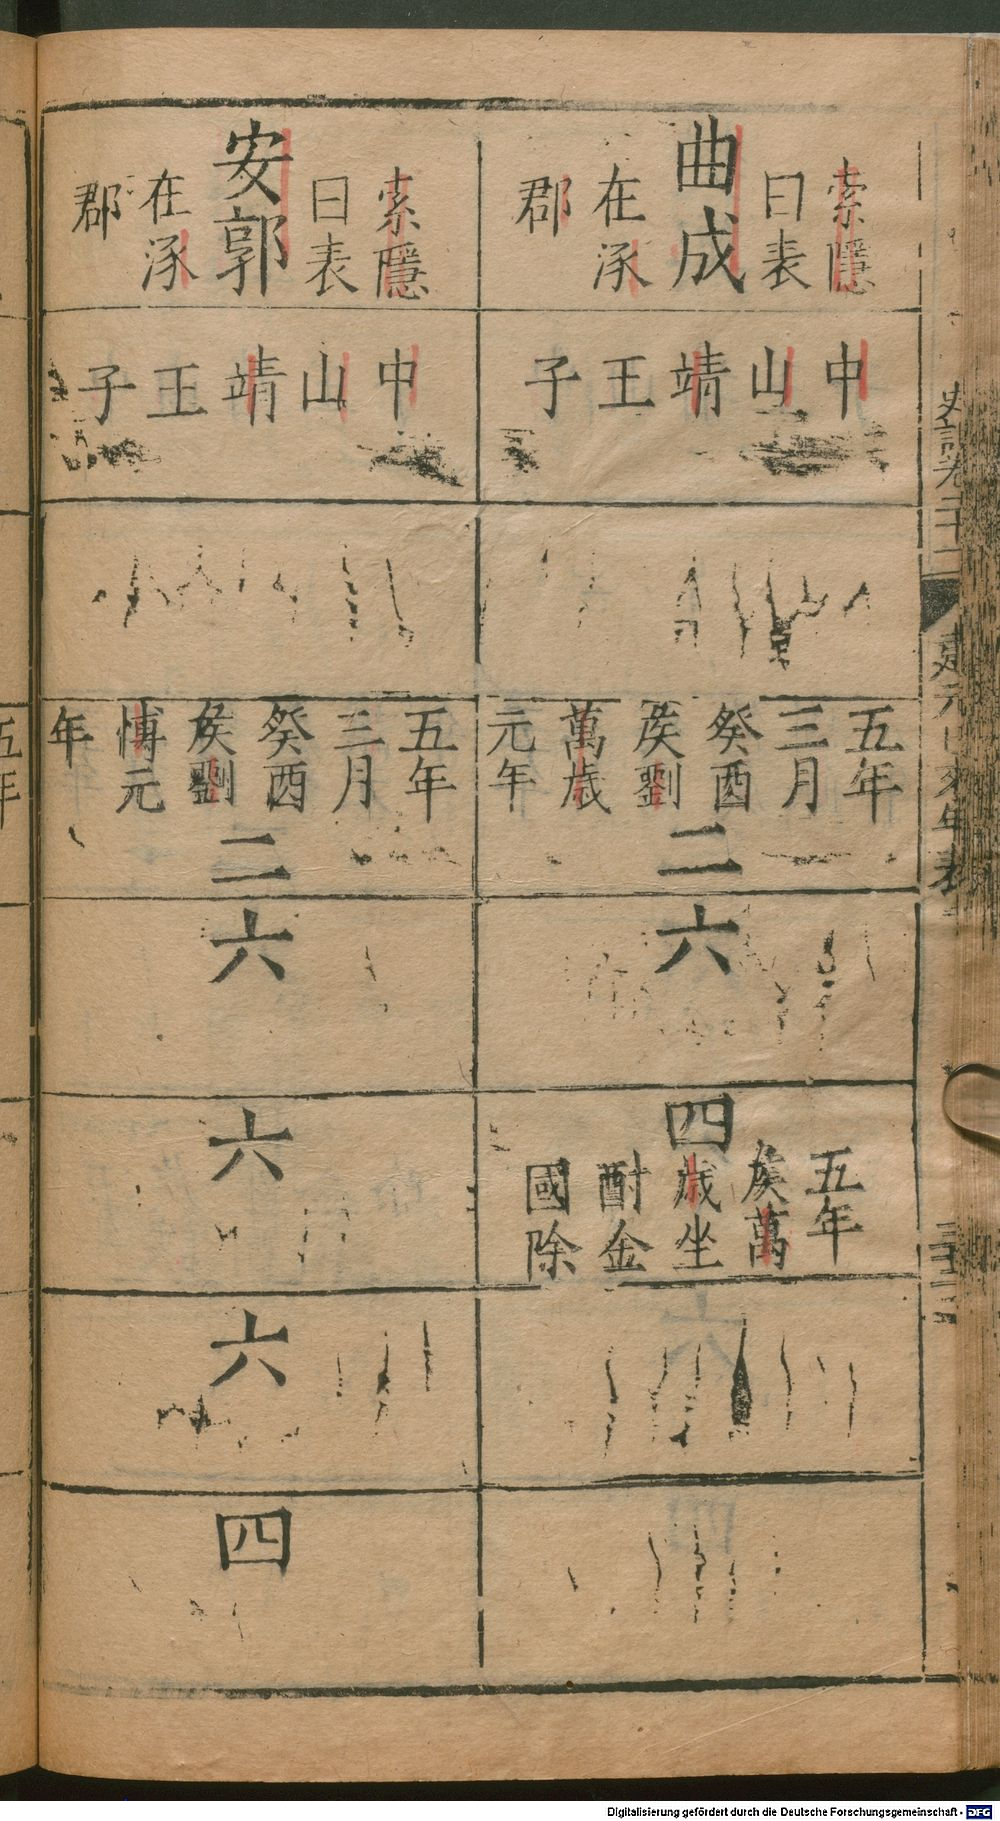 曲成
索隱
曰表
在涿
郡
中山靖王子
五年
三月
癸酉
矦劉
萬歲
元年
二
六
四
五年
矦萬
歲坐
酎金
國除
安郭
索隱
曰表
在涿
郡
中山靖王子
五年
三月
癸酉
矦劉
博元
年
二
六
六
六
四
史記卷二十一
建元以來年表
五年
Digitalisierung gefördert durch die Deutsche Forschungsgemeinschaft - DFG